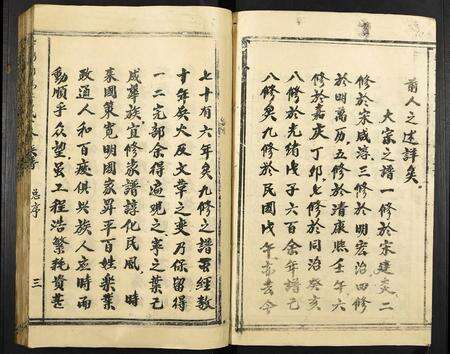 前人之述詳矣
大宗之譜一修於宋建炎二
修於宋咸淳三修於明宏治四修
於明萬历五修於清康熙壬午六
修於嘉庆丁卯七修於同治癸亥
八修於光緒戊子六百余年譜已
八修矣九修於民國戊午 今
七十有六年矣九修之譜虽經数
十年矣火及文章之变乃保留得
一二完部余得遍观之 之業已
咸舉族宜修家譜諄化民風 時
来國策寬明國家昇平百姓樂業
政通人和百废俱兴族人应時而
動順乎众望虽工程浩繁耗資甚
总序
三